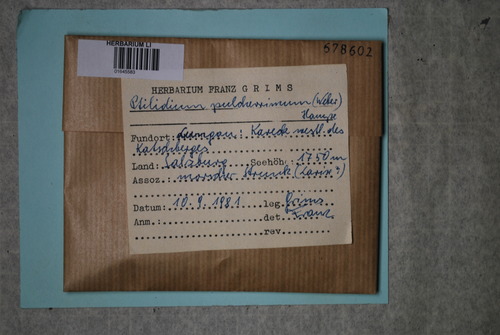 HERBARIUM LI
01645583
678602
HERBARIUM FRANZ GRIMS
Ptilidium pulcherrimum (Weber)
Hampe
Fundort: Lungau: westl. des
Katschberges
Land: Salzburg Seehöh: 1750 m
Assoz.: morscher Strunk (Larix?)
Datum: 10.9.1981 leg. Grims
Anm.: det. Franz
rev.